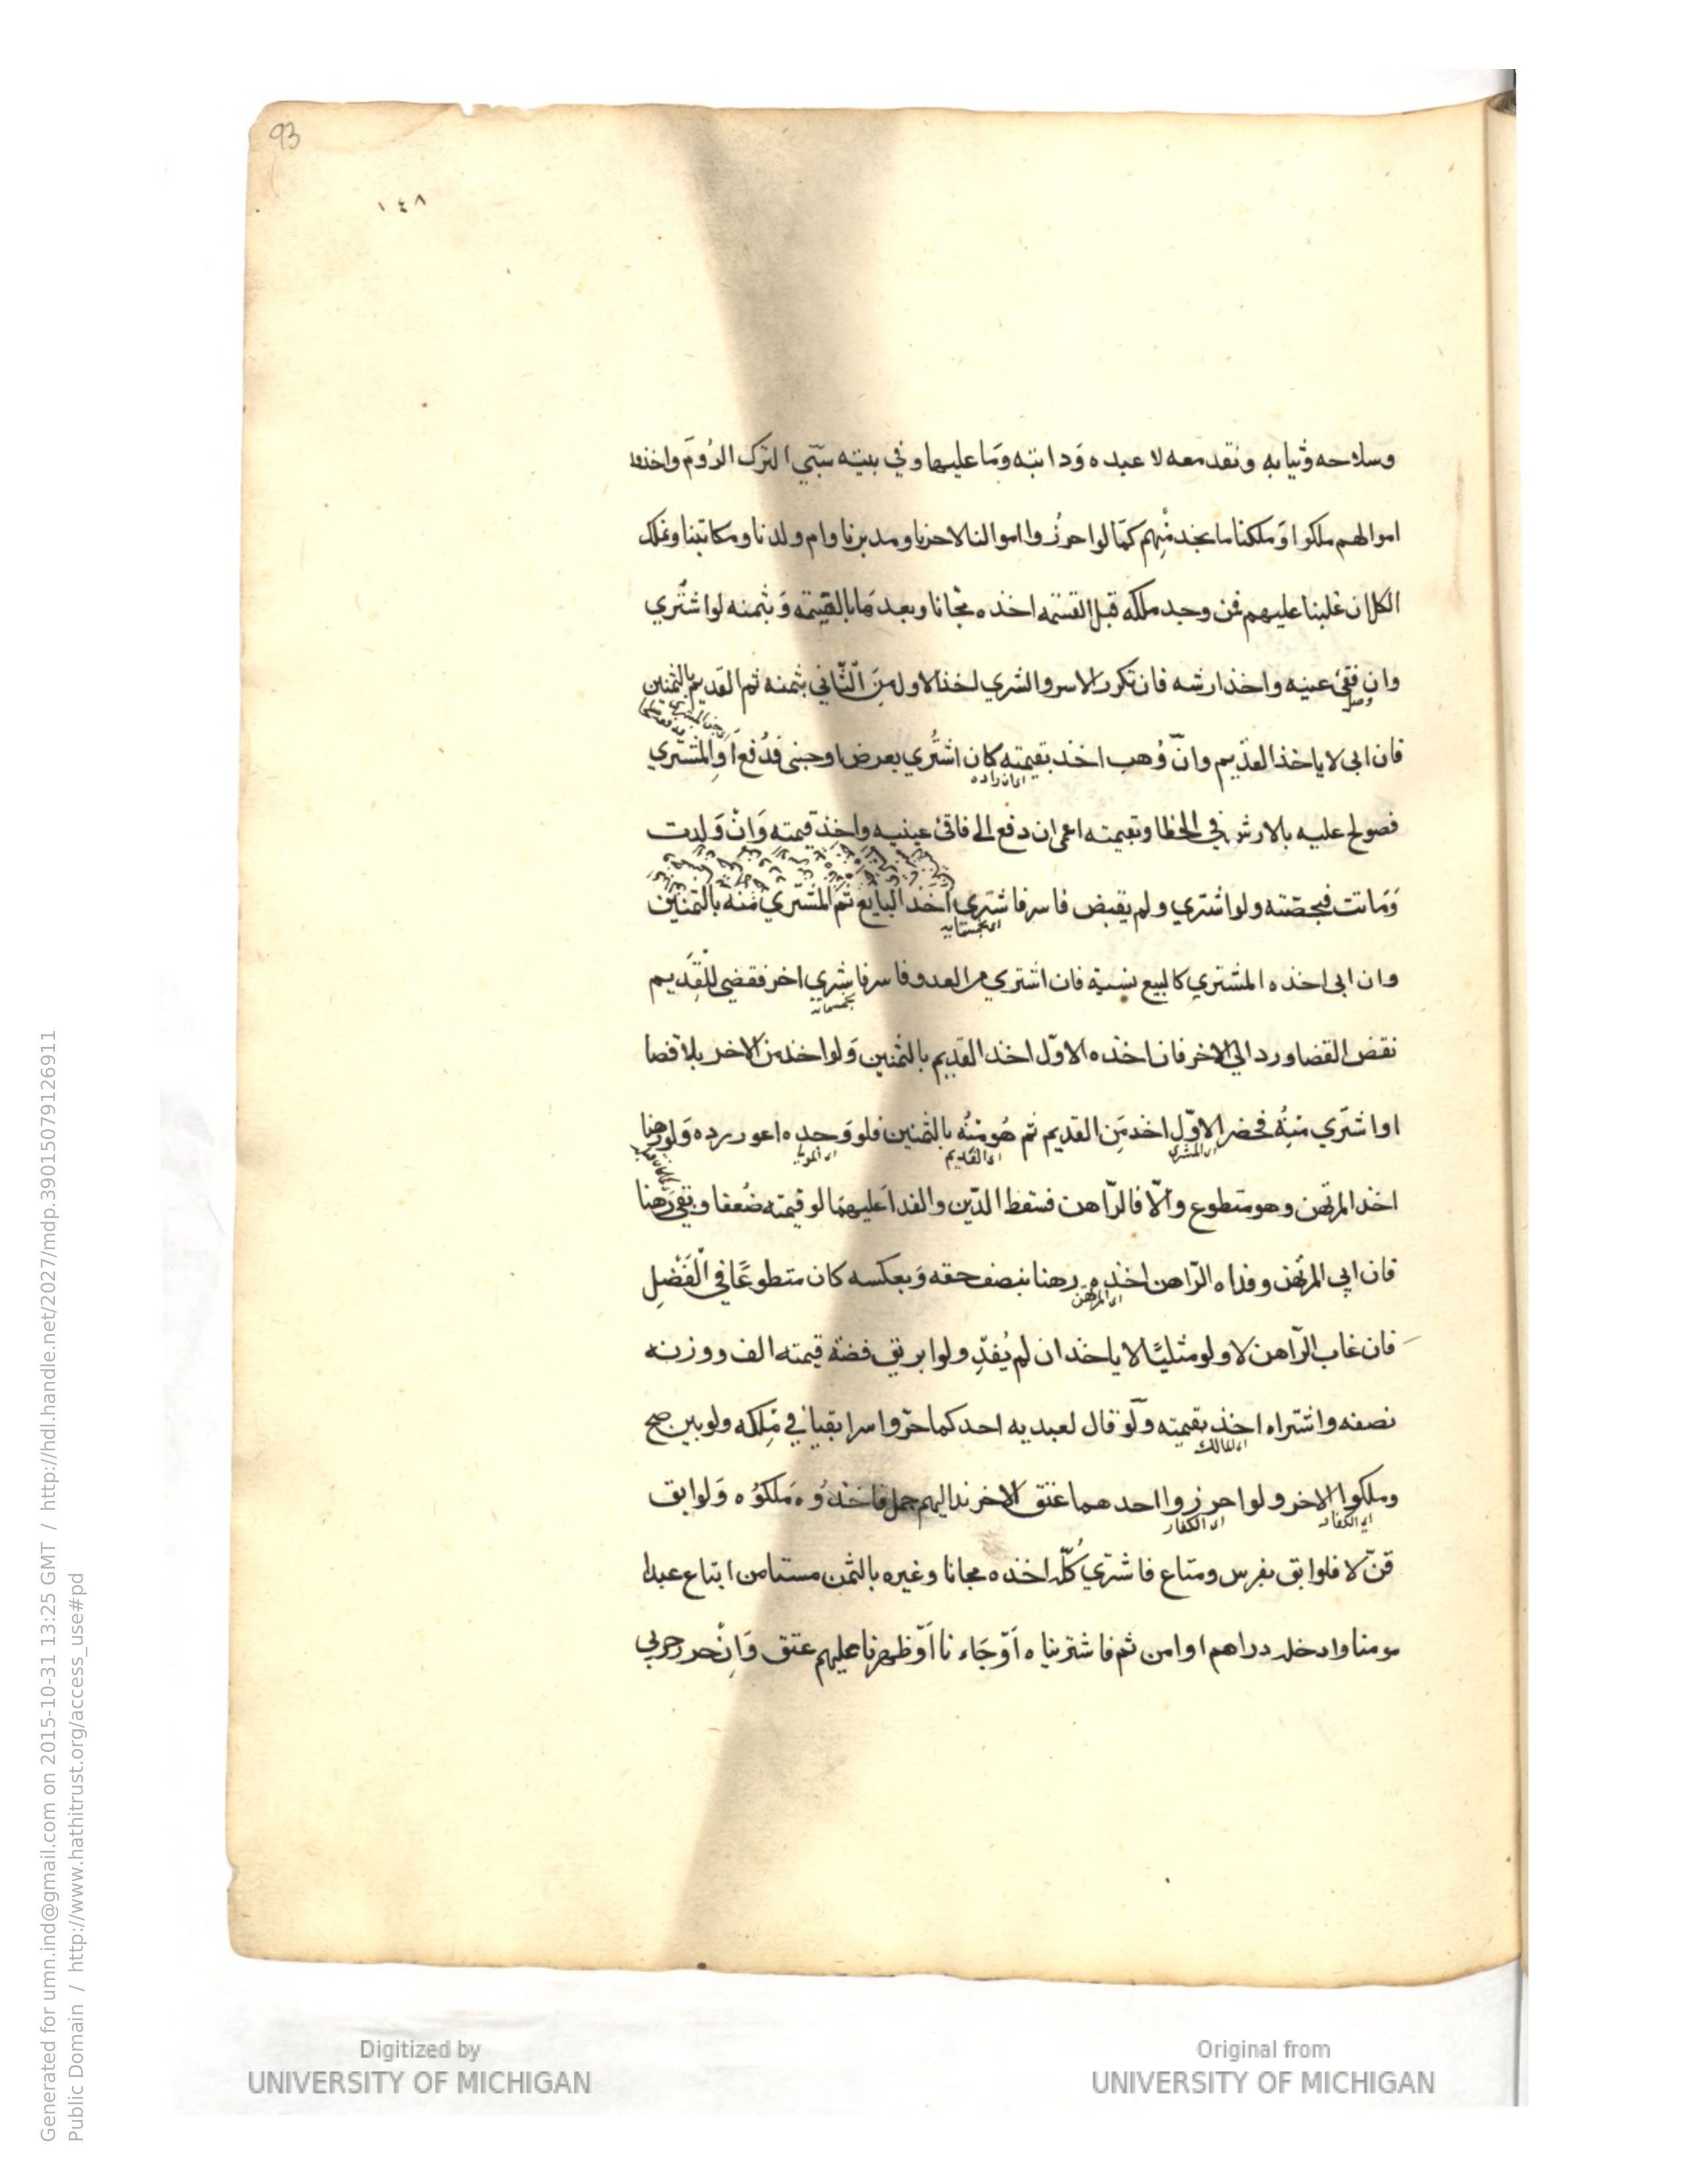 93
١٤٨
وسلاحه وثيابه ونقد معه لا عبده وَدابته وَما عليها وفي بيته سبي الترك الرُومَ واخذوا
اموالهم ملكوا وَملكنا ما نجد منهم كما لو احرزوا اموالنا لا حرنا ومدبرنا وام ولدنا ومكاتبنا ونملك
الكل ان غلبنا عليهم فمن وجد ملكه قبل القسمه اخذه مجانا وبعدها بالقيمه وَبثمنه لو اشتُري
وان فقئ عينه واخذ ارشه فان تكرر الاسر والشري اخذ الاول مِنَ الثّاني بثمنه ثم القديم بالثمنين
فان ابى لا ياخذ القديم وانّ وُهب اخذ بقيمته كان اشتُري بعرض او جنى فدُفع اَوالمشتري
فصولح عليه بالارش في الخطا وبقيمته اعمى ان دفع الى فاقئ عينيه واخذ قيمته وَانْ وَلدت
وَمَاتت فبحصّته ولو اشتري ولم يقبض فاسر فاشتري اخذ البايع ثمَ المشتري منه بالثمنين
وان ابى اخذه المشتري كالبيع نسية فان اشتري من العدو فاسر فاشري اخر فقضى للقديم
نقض القضا ورد الى الاخر فان اخذه الاوّل اخذ القديم بالثمنين وَلو اخذ من الاخر بلا قضا
او اشتَري منِهُ فحضر الاوّل اخذ مِن القديم ثم هُو منهُ بالثمنين فلو وَجده اعور رده وَلو رهنا
اخذ المرتهن وهو متطوع والّا فالرّاهن فسقط الدّين والفدا عَليهمَا لو قيمته ضُعفا وبقي رَهنا
فان ابي المرتُهن وفداه الرّاهن اخذه رهنا بنصف حقه وَبعكسه كان متطوعًا في الْفَضْلِ
فان غاب الرّاهن لا ولو مثليًا لا ياخذ ان لم يُفدّ ولو ابريق فضة قيمته الف ووزنه
نصفه واشتراه اخذ بقيمته وَلو قال لعبديه احدكما حرّ واسرا بقيا في مِلكه ولو بين صح
وملكوا الاخر ولو احرزوا احدهما عتق الاخر ند اليهم جمل فاخذُوه مَلكوُه وَلو ابق
قنّ لا فلو ابق بفرس ومتاع فاشتري كُلّ اخذه مجانا وغيره بالثمن مستامن ابتاع عبدا
مومنا وادخله دراهم او امن ثم فاشتريناه اَوْ جَاءنا اَوْ ظهرنا عليهم عتق وَانْ حرر حربي
اى المشتري
اى القديم
اى المرتهن
اى المالك
اى الكفار
اى الكفار
Digitized by
UNIVERSITY OF MICHIGAN
Original from
UNIVERSITY OF MICHIGAN
Generated for umn.ind@gmail.com on 2015-10-31 13:25 GMT / http://hdl.handle.net/2027/mdp.39015079126911
Public Domain / http://www.hathitrust.org/access_use#pd